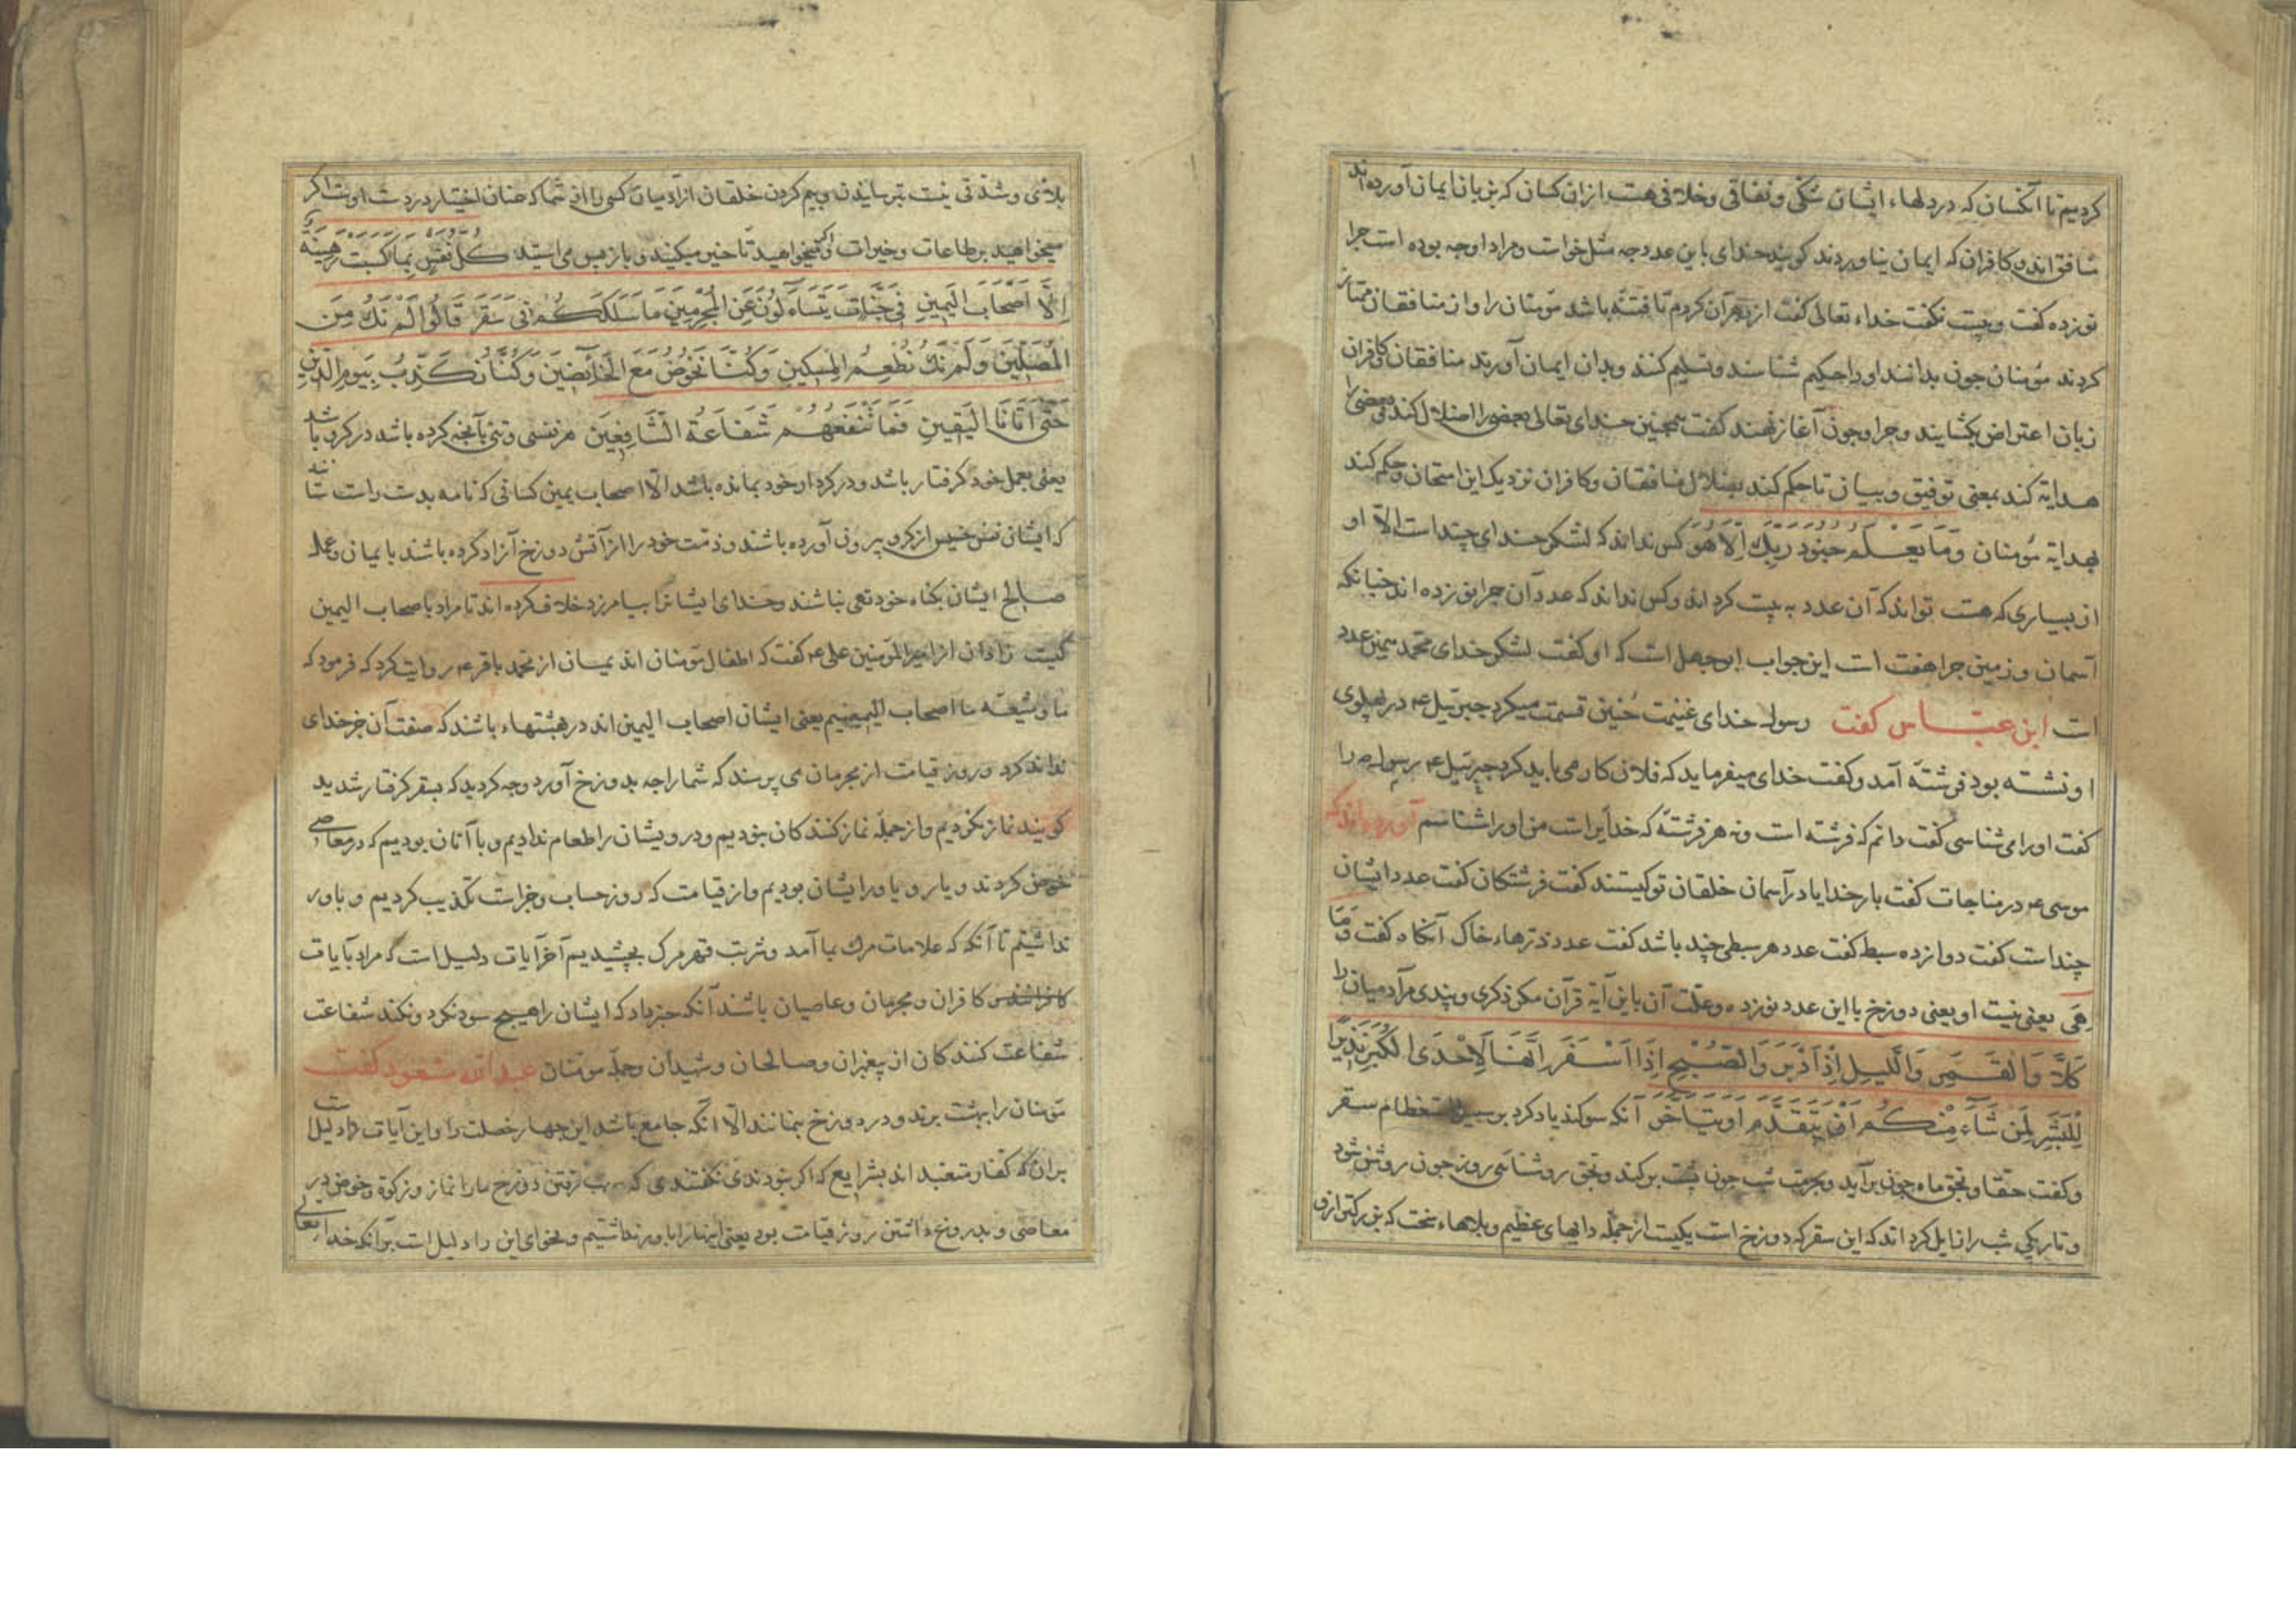 کردیم تا آنکسان که در دلهاء ایشان شکی و نفاقی و خلافی هست ازان کسان که بزبان ایمان آورده‌اند
منافق اند و کافران که ایمان نیاوردند کویند خدای باین عدد چه مثل خواست و مراد او چه بوده است چرا
نوزده کفت و بیست نکفت خداء تعالی کفت از بهر آن کردم تا فتنه باشد مؤمنان را و از منافقان ممتاز
کردند مؤمنان چون بدانند او را حکیم شناسند و تسلیم کنند و بدان ایمان آورند منافقان و کافران
زبان اعتراض بکشایند و چرا و چون آغاز نهند کفت همچنین خدای تعالی بعضی را اضلال کند و بعضی را
هدایة کند بمعنی توفیق و بیان تا حکم کند بضلال منافقان و کافران نزدیک این امتحان و حکم کند
بهدایة مؤمنان وَمَا يَعْلَمُ جُنُودَ رَبِّكَ إِلَّا هُوَ کس نداند که لشکر خدای چند است الا او
از بسیاری که هست تواند که آن عدد به بیست کرداند و کس نداند که عدد آن چرا نوزده اند چنانکه
آسمان و زمین چرا هفت است این جواب ابوجهل است که او کفت لشکر خدای محمد همین عدد
است ابن عباس کفت رسول خدای غنیمت حنین قسمت میکرد جبرئیل ع در پهلوی
او نشسته بود فرشتۀ آمد و کفت خدای میفرماید که فلان کار می باید کرد جبرئیل ع رسول ص را
کفت او را می شناسی کفت دانم که فرشته است و نه هر فرشتۀ که خدایراست من او را شناسم آورده‌اند که
موسی ع در مناجات کفت بار خدایا در آسمان خلقان تو کیستند کفت فرشتکان کفت عدد ایشان
چند است کفت دوازده سبط کفت عدد هر سبطی چند باشد کفت عدد ذرهاء خاک آنکاه کفت وَمَا
هِیَ یعنی نیست او یعنی دوزخ با این عدد نوزده و علت آن با این آیة قرآن مکر ذکری و پندی مر آدمیان را
كَلَّا وَالْقَمَرِ وَاللَّيْلِ إِذْ أَدْبَرَ وَالصُّبْحِ إِذَا أَسْفَرَ إِنَّهَا لَإِحْدَى الْكُبَرِ نَذِيرًا
لِلْبَشَرِ لِمَنْ شَاءَ مِنْكُمْ أَنْ يَتَقَدَّمَ أَوْ يَتَأَخَّرَ آنکه سوکند یاد کرد بر سبیل استعظام سقر
و کفت حقا و بحق ماه چون برآید و بحرمت شب چون پشت برکند و بحق روشنائی روز چون روشن شود
و تاریکی شب را زایل کرداند که این سقر که دوزخ است یکیست از جمله داهیهای عظیم و بلاهاء سخت که بزرکتر ازو
بلائی و شدتی نیست بترسانیدن و بیم کردن خلقان از آدمیان کسی را از شما که چنان اختیار در دست اوست اکر
میخواهید بر طاعات و خیرات و اکر نمیخواهید تاخیر میکنید و باز پس می استید كُلُّ نَفْسٍ بِمَا كَسَبَتْ رَهِينَةٌ
إِلَّا أَصْحَابَ الْيَمِينِ فِي جَنَّاتٍ يَتَسَاءَلُونَ عَنِ الْمُجْرِمِينَ مَا سَلَكَكُمْ فِي سَقَرَ قَالُوا لَمْ نَكُ مِنَ
الْمُصَلِّينَ وَلَمْ نَكُ نُطْعِمُ الْمِسْكِينَ وَكُنَّا نَخُوضُ مَعَ الْخَائِضِينَ وَكُنَّا نُكَذِّبُ بِيَوْمِ الدِّينِ
حَتَّى أَتَانَا الْيَقِينُ فَمَا تَنْفَعُهُمْ شَفَاعَةُ الشَّافِعِينَ هر نفسی و تنی بآنچه کرده باشد در کرو باشد
یعنی بعمل خود کرفتار باشد و در کردار خود بمانده باشد الا اصحاب یمین کسانی که نامه بدست راست ستانند
که ایشان نفس خویش از کرو بیرون آورده باشند و ذمت خود را از آتش دوزخ آزاد کرده باشند بایمان و عمل
صالح ایشان بکناه خود نباشند و خدای ایشانرا بیامرزد خلاف کرده اند تا مراد باصحاب الیمین
کیست زادان از امیر المؤمنین علی ع کفت که اطفال مؤمنان اند از محمد باقر ع روایت کرد که فرمود که
ما و شیعۀ ما اصحاب الیمینیم یعنی ایشان اصحاب الیمین اند در بهشتهاء باشند که صفت آن جز خدای
نداند کرد و روز قیامت از مجرمان می پرسند که شما را چه بدوزخ آورد و چه کردید که بسقر کرفتار شدید
کویند نماز نکردیم و از جملۀ نماز کنندکان نبودیم و درویشان را طعام ندادیم و با آنان بودیم که در معاصی
خوض کردند و یار و یاور ایشان بودیم و از قیامت که روز حساب و جزاست تکذیب کردیم و باور
نداشتیم تا آنکه که علامات مرک بما آمد و شربت قهر مرک بچشیدیم آخر آیات دلیل است که مراد بآیات
کافران و مجرمان و عاصیان باشند آنکه خبر داد که ایشان را هیچ سود نکرد و نکند شفاعت
شفاعت کنندکان از پیغمبران و صالحان و شهیدان و جملۀ مؤمنان عبد الله مسعود کفت
مؤمنان را ببهشت برند و در دوزخ نمانند الا آنکه جامع باشد این چهار خصلت را و این آیات دلیل است
بر آن که کفار متعبد اند بشرایع که اکر نبودندی نکفتندی که سبب رفتن دوزخ ما را نماز و زکوة و خوض در
معاصی و بدروغ داشتن روز قیامت بود یعنی اینها را باور نداشتیم و فحوای این را دلیل است بر آنکه خدای تعالی